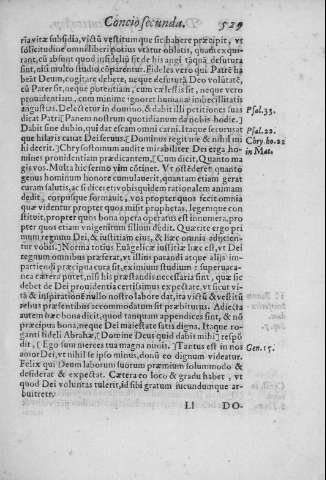 Concio secunda. 529
ria, vitæ subsidia, victū vestitumque sic habere præcipit, vt
solicitudine omni liberi potius viuere oblatis, quàm exqui-
rant, cũ absunt quod infideliũ sit de his angi tãquā desutura
sint, nisi multo studio cõparentur. Fideles vero qui Patrē ha
bēāt Deum, cogitare debere, neque deesse Deo voluntatē,
cū Pater sit, neque potentiam, cum cælestis sit, neque vero
prouidentiam, cum minime ignoret humanæ imbecillitatis
angustias. Delectetur in domino, & dabit illi petitiones suas
dicat Patri [Panem nostrum quotidianum da nobis hodie.] Psal. 35.
Dabit sine dubio, qui dat escam omni carni. Itaque securus at
que hilaris canat Dei seruus. [Dominus regit me & nihil mi Psal. 22.
hi deerit.] Chrysostomum audite mirabiliter Dei erga ho- Chry. ho. 22
mines prouidentiam prædicantem, [Cum dicit, Quanto ma in Mat.
gis vos. Multa hic sermo vim cōtinet. Vt ostēderet, quanto
genus hominum honore cumulauerit, quantam etiam gerat
curam salutis, ac si diceret: vobis quidem rationalem animam
dedit, corpusque formauit, vos propter quos fecit omnia
quæ videntur propter quos misit prophetas, legemque con
stituit, propter quos bona opera operatus est innumera, pro
pter quos etiam vnigenitum filium dedit. Quærite ergo pri
mum regnum Dei, & iustitiam eius, & hæc omnia adijcien-
tur vobis.] Norma totius Euãgelicæ iustitiæ hæc est, vt Dei
regnum omnibus præferat, vt illius parandi atque alijs im-
partiendi præcipua cura sit, eximium studium: superuaca-
nea cætera putet, nisi his præstandis necessaria sint, quæ sic
debet de Dei prouidentia certissimus expectare, vt sicut vi-
tā & inspiratione nullo nostro labore dat, ita victū & vestitū
rebus præsentibus accommodatum sit præbiturus. Adiecta
autem hæc bona dicit, quod tanquam appendices sint, & nō
præcipua bona, neque Dei maiestate satis digna. Itaque ro-
ganti fideli Abrahæ, [Domine Deus quid dabis mihi] respō
dit, [Ego sum merces tua magna nimis.] Tantus est in nos Gen. 15.
amor Dei, vt nihil se ipso minus, donū eo dignum videatur.
Felix qui Deum laborum suorum præmium solummodo &
desiderat & expectat. Cætera eo loco & gradu habet, vt
quod Dei voluntas tulerit, id sibi gratum iucundumque ar-
bitretur.
Ll DO-